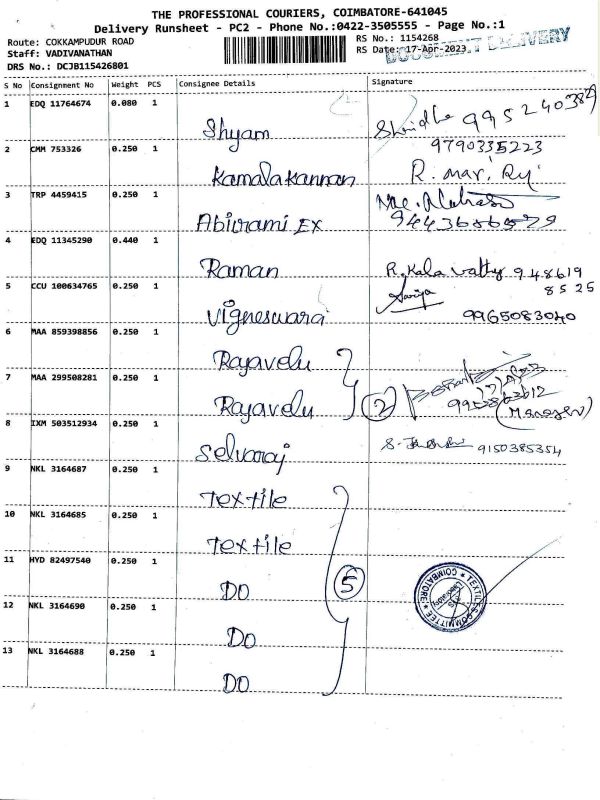 THE PROFESSIONAL COURIERS, COIMBATORE-641045
Delivery Runsheet - PC2 - Phone No.:0422-3505555 - Page No.:1
Route: COKKAMPUDUR ROAD
RS No.: 1154268
Staff: VADIVANATHAN
RS Date: 17-Apr-2023
DOCUMENT DELIVERY
DRS No.: DCJB115426801
S No Consignment No Weight PCS Consignee Details Signature
1 EDQ 11764674 0.080 1
Shyam 9952403829
2 CMM 753326 0.250 1 9790335223
Kamalakannan
3 TRP 4459415 0.250 1
Abirami Ex
4 EDQ 11345290 0.440 1
Raman R. Kala vathy 948619
5 CCU 100634765 0.250 1 8525
Vigneswara 9965083040
6 MAA 859398856 0.250 1
Rajavelu
7 MAA 299508281 0.250 1
Rajavelu 2 (Manager)
8 IXM 503512934 0.250 1
Selvaraj 9150385354
9 NKL 3164687 0.250 1
Textile
10 NKL 3164685 0.250 1
Textile
11 HYD 82497540 0.250 1
DO 5
TEXTILES COMMITTEE COIMBATORE
12 NKL 3164690 0.250 1
DO
13 NKL 3164688 0.250 1
DO